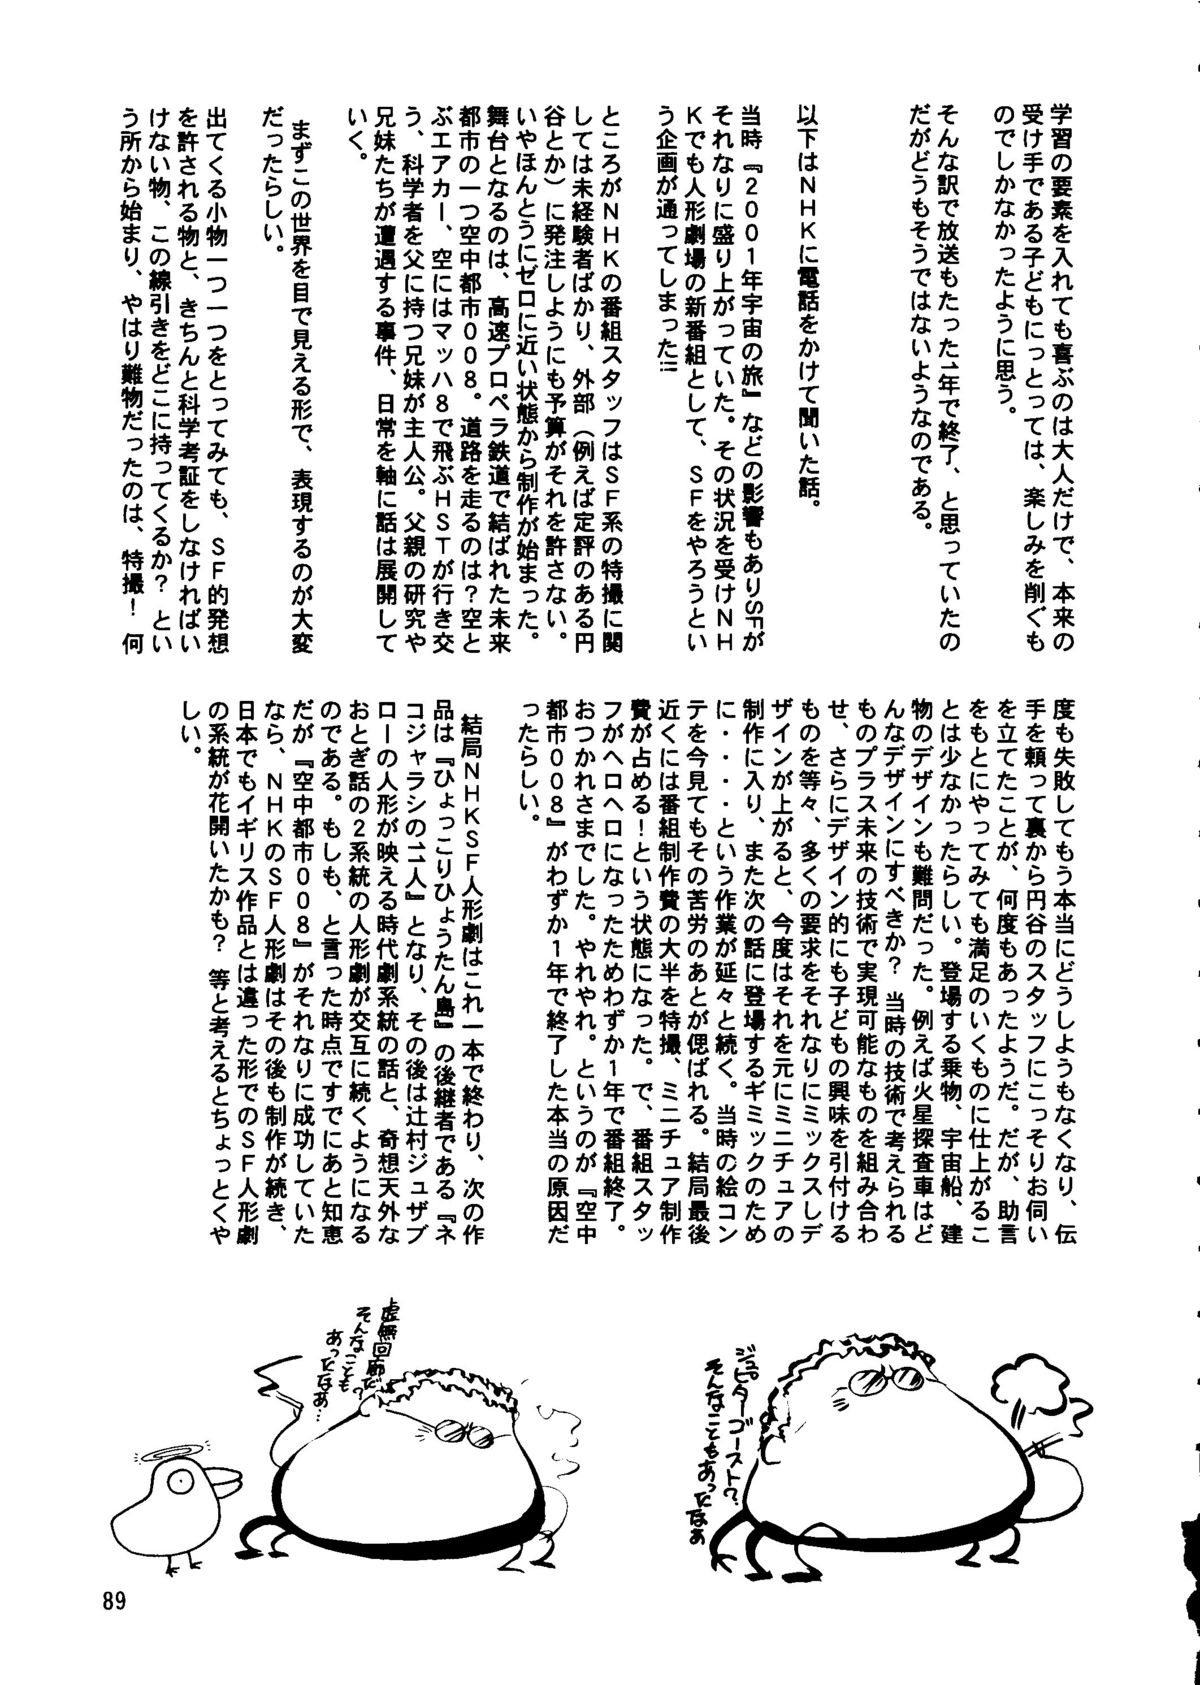 学習の要素を入れても喜ぶのは大人だけで、本来の
受け手である子どもにっとては、楽しみを削ぐも
のでしかなかったように思う。
そんな訳で放送もたった1年で終了、と思っていたの
だがどうもそうではないようなのである。
以下はNHKに電話をかけて聞いた話。
当時『2001年宇宙の旅』などの影響もありSFが
それなりに盛り上がっていた。その状況を受けNH
Kでも人形劇場の新番組として、SFをやろうとい
う企画が通ってしまった!!
ところがNHKの番組スタッフはSF系の特撮に関
しては未経験者ばかり、外部（例えば定評のある円
谷とか）に発注しようにも予算がそれを許さない。
いやほんとうにゼロに近い状態から制作が始まった。
舞台となるのは、高速プロペラ鉄道で結ばれた未来
都市の一つ空中都市008。道路を走るのは？空と
ぶエアカー、空にはマッハ8で飛ぶHSTが行き交
う、科学者を父に持つ兄妹が主人公。父親の研究や
兄妹たちが遭遇する事件、日常を軸に話は展開して
いく。
まずこの世界を目で見える形で、表現するのが大変
だったらしい。
出てくる小物一つ一つをとってみても、SF的発想
を許される物と、きちんと科学考証をしなければい
けない物、この線引きをどこに持ってくるか？とい
う所から始まり、やはり難物だったのは、特撮！何
度も失敗してもう本当にどうしようもなくなり、伝
手を頼って裏から円谷のスタッフにこっそりお伺い
を立てたことが、何度もあったようだ。だが、助言
をもとにやってみても満足のいくものに仕上がるこ
とは少なかったらしい。登場する乗物、宇宙船、建
物のデザインも難問だった。例えば火星探査車はど
んなデザインにすべきか？当時の技術で考えられる
ものプラス未来の技術で実現可能なものを組み合わ
せ、さらにデザイン的にも子どもの興味を引付ける
ものを等々、多くの要求をそれなりにミックスしデ
ザインが上がると、今度はそれを元にミニチュアの
制作に入り、また次の話に登場するギミックのため
に・・・・という作業が延々と続く。当時の絵コン
テを今見てもその苦労のあとが偲ばれる。結局最後
近くには番組制作費の大半を特撮、ミニチュア制作
費が占める！という状態になった。で、番組スタッ
フがヘロヘロになったためわずか1年で番組終了。
おつかれさまでした。やれやれ。というのが『空中
都市008』がわずか1年で終了した本当の原因だ
ったらしい。
結局NHKSF人形劇はこれ一本で終わり、次の作
品は『ひょっこりひょうたん島』の後継者である『ネ
コジャラシの11人』となり、その後は辻村ジュザブ
ローの人形が映える時代劇系統の話と、奇想天外な
おとぎ話の2系統の人形劇が交互に続くようになる
のである。もしも、と言った時点ですでにあと知恵
だが『空中都市008』がそれなりに成功していた
なら、NHKのSF人形劇はその後も制作が続き、
日本でもイギリス作品とは違った形でのSF人形劇
の系統が花開いたかも？等と考えるとちょっとくや
しい。
ジュピターゴースト？
そんなこともあったなぁ
虚無回廊だ？
そんなことも
あったなあ…
89